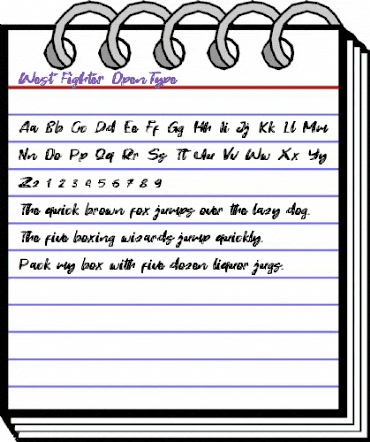 West Fighter OpenType
Aa Bb Cc Dd Ee Ff Gg Hh Ii Jj Kk Ll Mm
Nn Oo Pp Qq Rr Ss Tt Uu Vv Ww Xx Yy
Zz 1 2 3 4 5 6 7 8 9
The quick brown fox jumps over the lazy dog.
The five boxing wizards jump quickly.
Pack my box with five dozen liquor jugs.